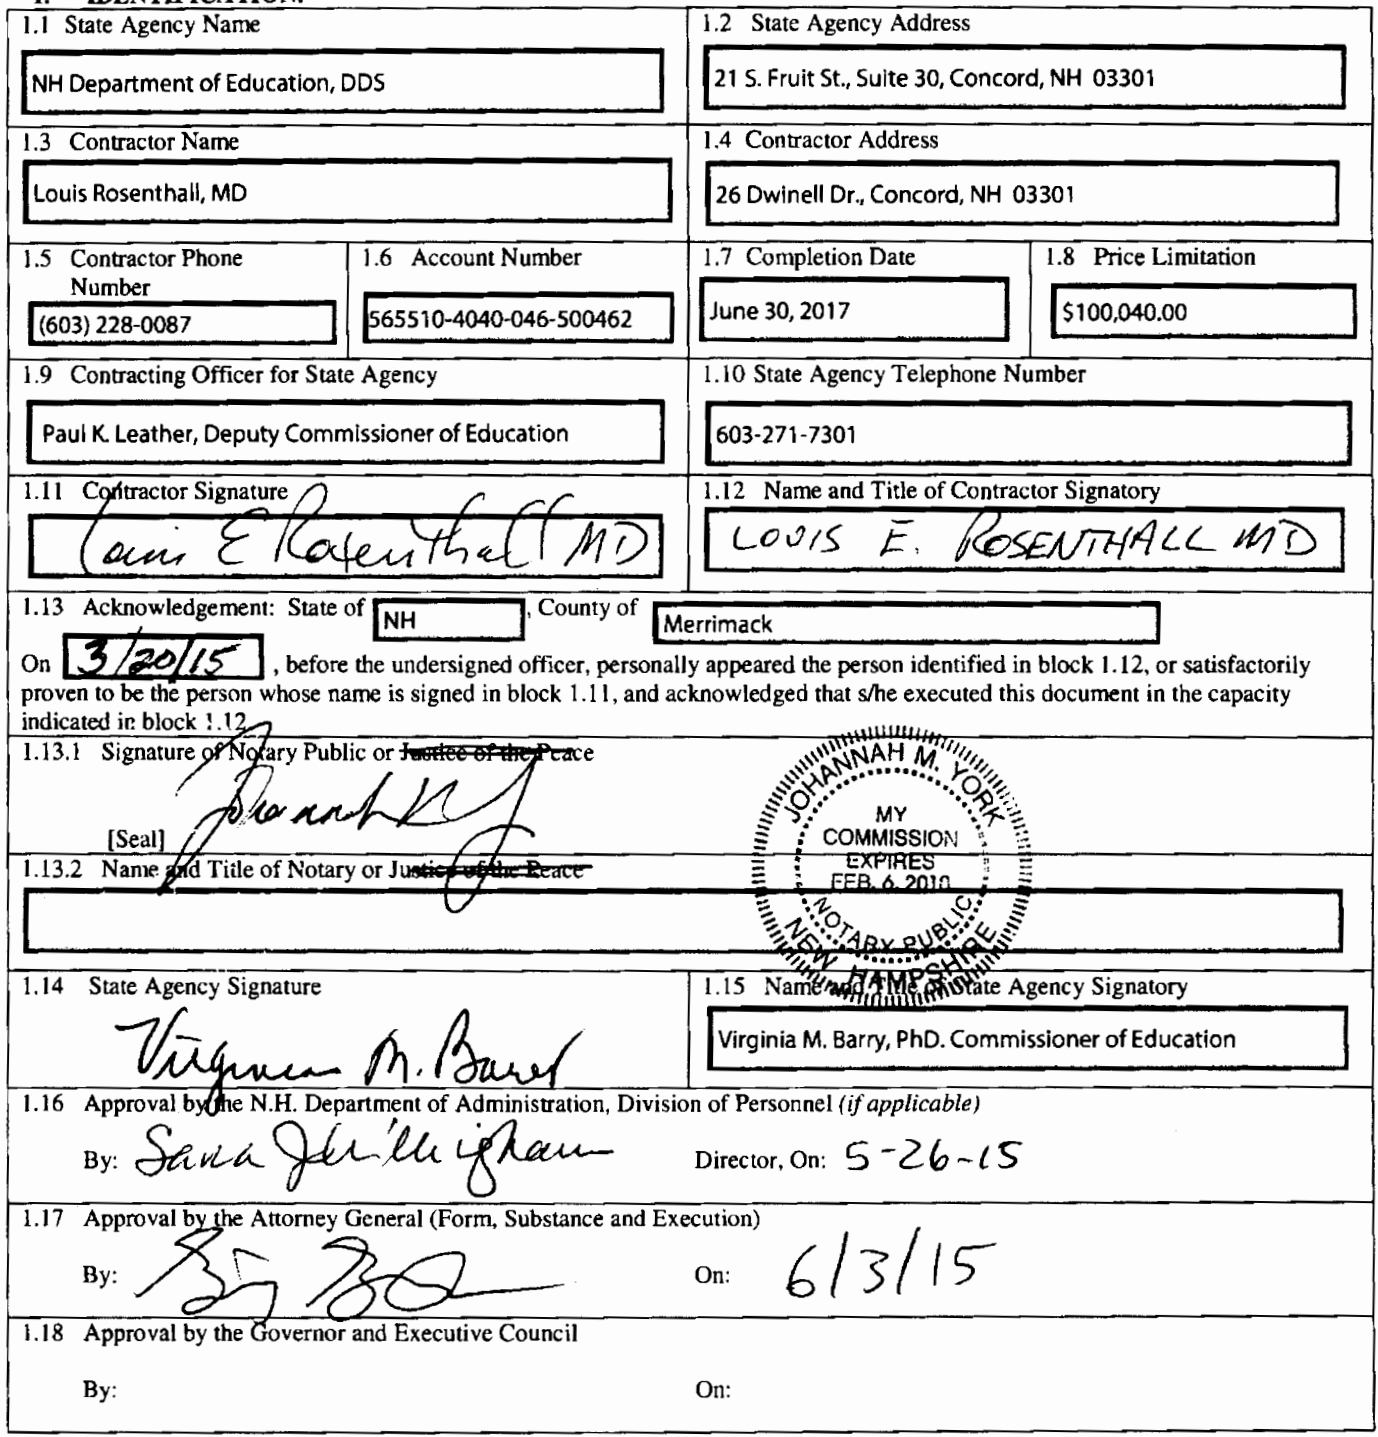 1. IDENTIFICATION.
1.1 State Agency Name
NH Department of Education, DDS
1.2 State Agency Address
21 S. Fruit St., Suite 30, Concord, NH 03301
1.3 Contractor Name
Louis Rosenthall, MD
1.4 Contractor Address
26 Dwinell Dr., Concord, NH 03301
1.5 Contractor Phone
Number
(603) 228-0087
1.6 Account Number
565510-4040-046-500462
1.7 Completion Date
June 30, 2017
1.8 Price Limitation
$100,040.00
1.9 Contracting Officer for State Agency
Paul K. Leather, Deputy Commissioner of Education
1.10 State Agency Telephone Number
603-271-7301
1.11 Contractor Signature
Louis E Rosenthall MD
1.12 Name and Title of Contractor Signatory
LOUIS E. ROSENTHALL MD
1.13 Acknowledgement: State of NH, County of Merrimack
On 3/20/15, before the undersigned officer, personally appeared the person identified in block 1.12, or satisfactorily
proven to be the person whose name is signed in block 1.11, and acknowledged that s/he executed this document in the capacity
indicated in block 1.12
1.13.1 Signature of Notary Public or Justice of the Peace
[Seal]
JOHANNAH M. YORK
MY
COMMISSION
EXPIRES
FEB. 6, 2010
NOTARY PUBLIC
NEW HAMPSHIRE
1.13.2 Name and Title of Notary or Justice of the Peace
1.14 State Agency Signature
Virginia M. Barry
1.15 Name and Title of State Agency Signatory
Virginia M. Barry, PhD. Commissioner of Education
1.16 Approval by the N.H. Department of Administration, Division of Personnel (if applicable)
By: Director, On: 5-26-15
1.17 Approval by the Attorney General (Form, Substance and Execution)
By: On: 6/3/15
1.18 Approval by the Governor and Executive Council
By: On: